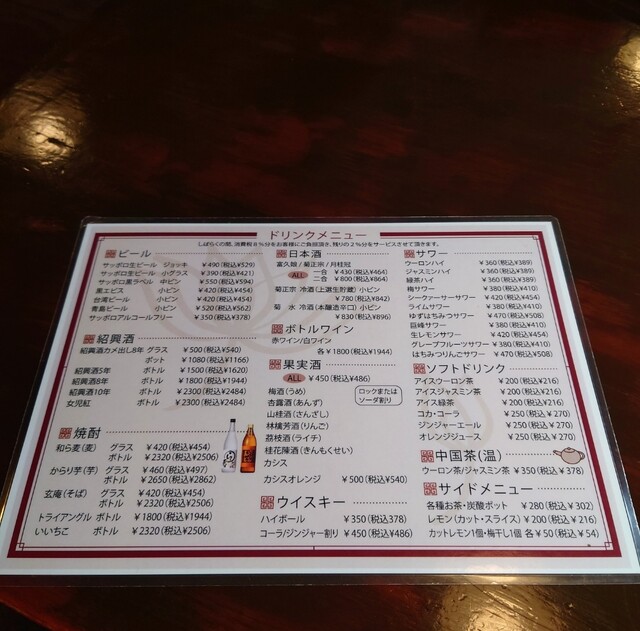 ドリンクメニュー
しばらくの間、消費税8%分をお客様にご負担頂き、残りの2%分をサービスさせて頂きます。
ビール
サッポロ生ビール ジョッキ ¥490(税込¥529)
サッポロ生ビール 小グラス ¥390(税込¥421)
サッポロ黒ラベル 中ビン ¥550(税込¥594)
黒エビス 小ビン ¥420(税込¥454)
台湾ビール 小ビン ¥420(税込¥454)
青島ビール 小ビン ¥520(税込¥562)
サッポロアルコールフリー ¥350(税込¥378)
紹興酒
紹興酒カメ出し8年 グラス ¥500(税込¥540)
ポット ¥1080(税込¥1166)
紹興酒5年 ボトル ¥1500(税込¥1620)
紹興酒8年 ボトル ¥1800(税込¥1944)
紹興酒10年 ボトル ¥2300(税込¥2484)
女児紅 ボトル ¥2300(税込¥2484)
焼酎
和ら麦(麦) グラス ¥420(税込¥454)
ボトル ¥2320(税込¥2506)
からり芋(芋) グラス ¥460(税込¥497)
ボトル ¥2650(税込¥2862)
玄庵(そば) グラス ¥420(税込¥454)
ボトル ¥2320(税込¥2506)
トライアングル ボトル ¥1800(税込¥1944)
いいちこ ボトル ¥2320(税込¥2506)
日本酒
富久娘/菊正宗/月桂冠
ALL 一合 ¥430(税込¥464)
二合 ¥800(税込¥864)
菊正宗 冷酒(上選生貯蔵)小ビン
¥780(税込¥842)
菊 水 冷酒(本醸造辛口)小ビン
¥830(税込¥896)
ボトルワイン
赤ワイン/白ワイン
各¥1800(税込¥1944)
果実酒
ALL ¥450(税込¥486)
梅酒(うめ)
杏露酒(あんず)
山桂酒(さんざし)
林檎芳酒(りんご)
茘枝酒(ライチ)
桂花陳酒(きんもくせい)
カシス
カシスオレンジ ¥500(税込¥540)
ロックまたは
ソーダ割り
ウイスキー
ハイボール ¥350(税込378)
コーラ/ジンジャー割り ¥450(税込¥486)
サワー
ウーロンハイ ¥360(税込¥389)
ジャスミンハイ ¥360(税込¥389)
緑茶ハイ ¥360(税込¥389)
梅サワー ¥380(税込¥410)
シークァーサーサワー ¥420(税込¥454)
ライムサワー ¥380(税込¥410)
ゆずはちみつサワー ¥470(税込¥508)
巨峰サワー ¥380(税込¥410)
生レモンサワー ¥420(税込¥454)
グレープフルーツサワー ¥380(税込¥410)
はちみつりんごサワー ¥470(税込¥508)
ソフトドリンク
アイスウーロン茶 ¥200(税込¥216)
アイスジャスミン茶 ¥200(税込¥216)
アイス緑茶 ¥200(税込¥216)
コカ・コーラ ¥250(税込¥270)
ジンジャーエール ¥250(税込¥270)
オレンジジュース ¥250(税込¥270)
中国茶(温)
ウーロン茶/ジャスミン茶 ¥350(税込¥378)
サイドメニュー
各種お茶・炭酸ポット ¥280(税込¥302)
レモン(カット・スライス) ¥200(税込¥216)
カットレモン1個・梅干し1個 各¥50(税込¥54)